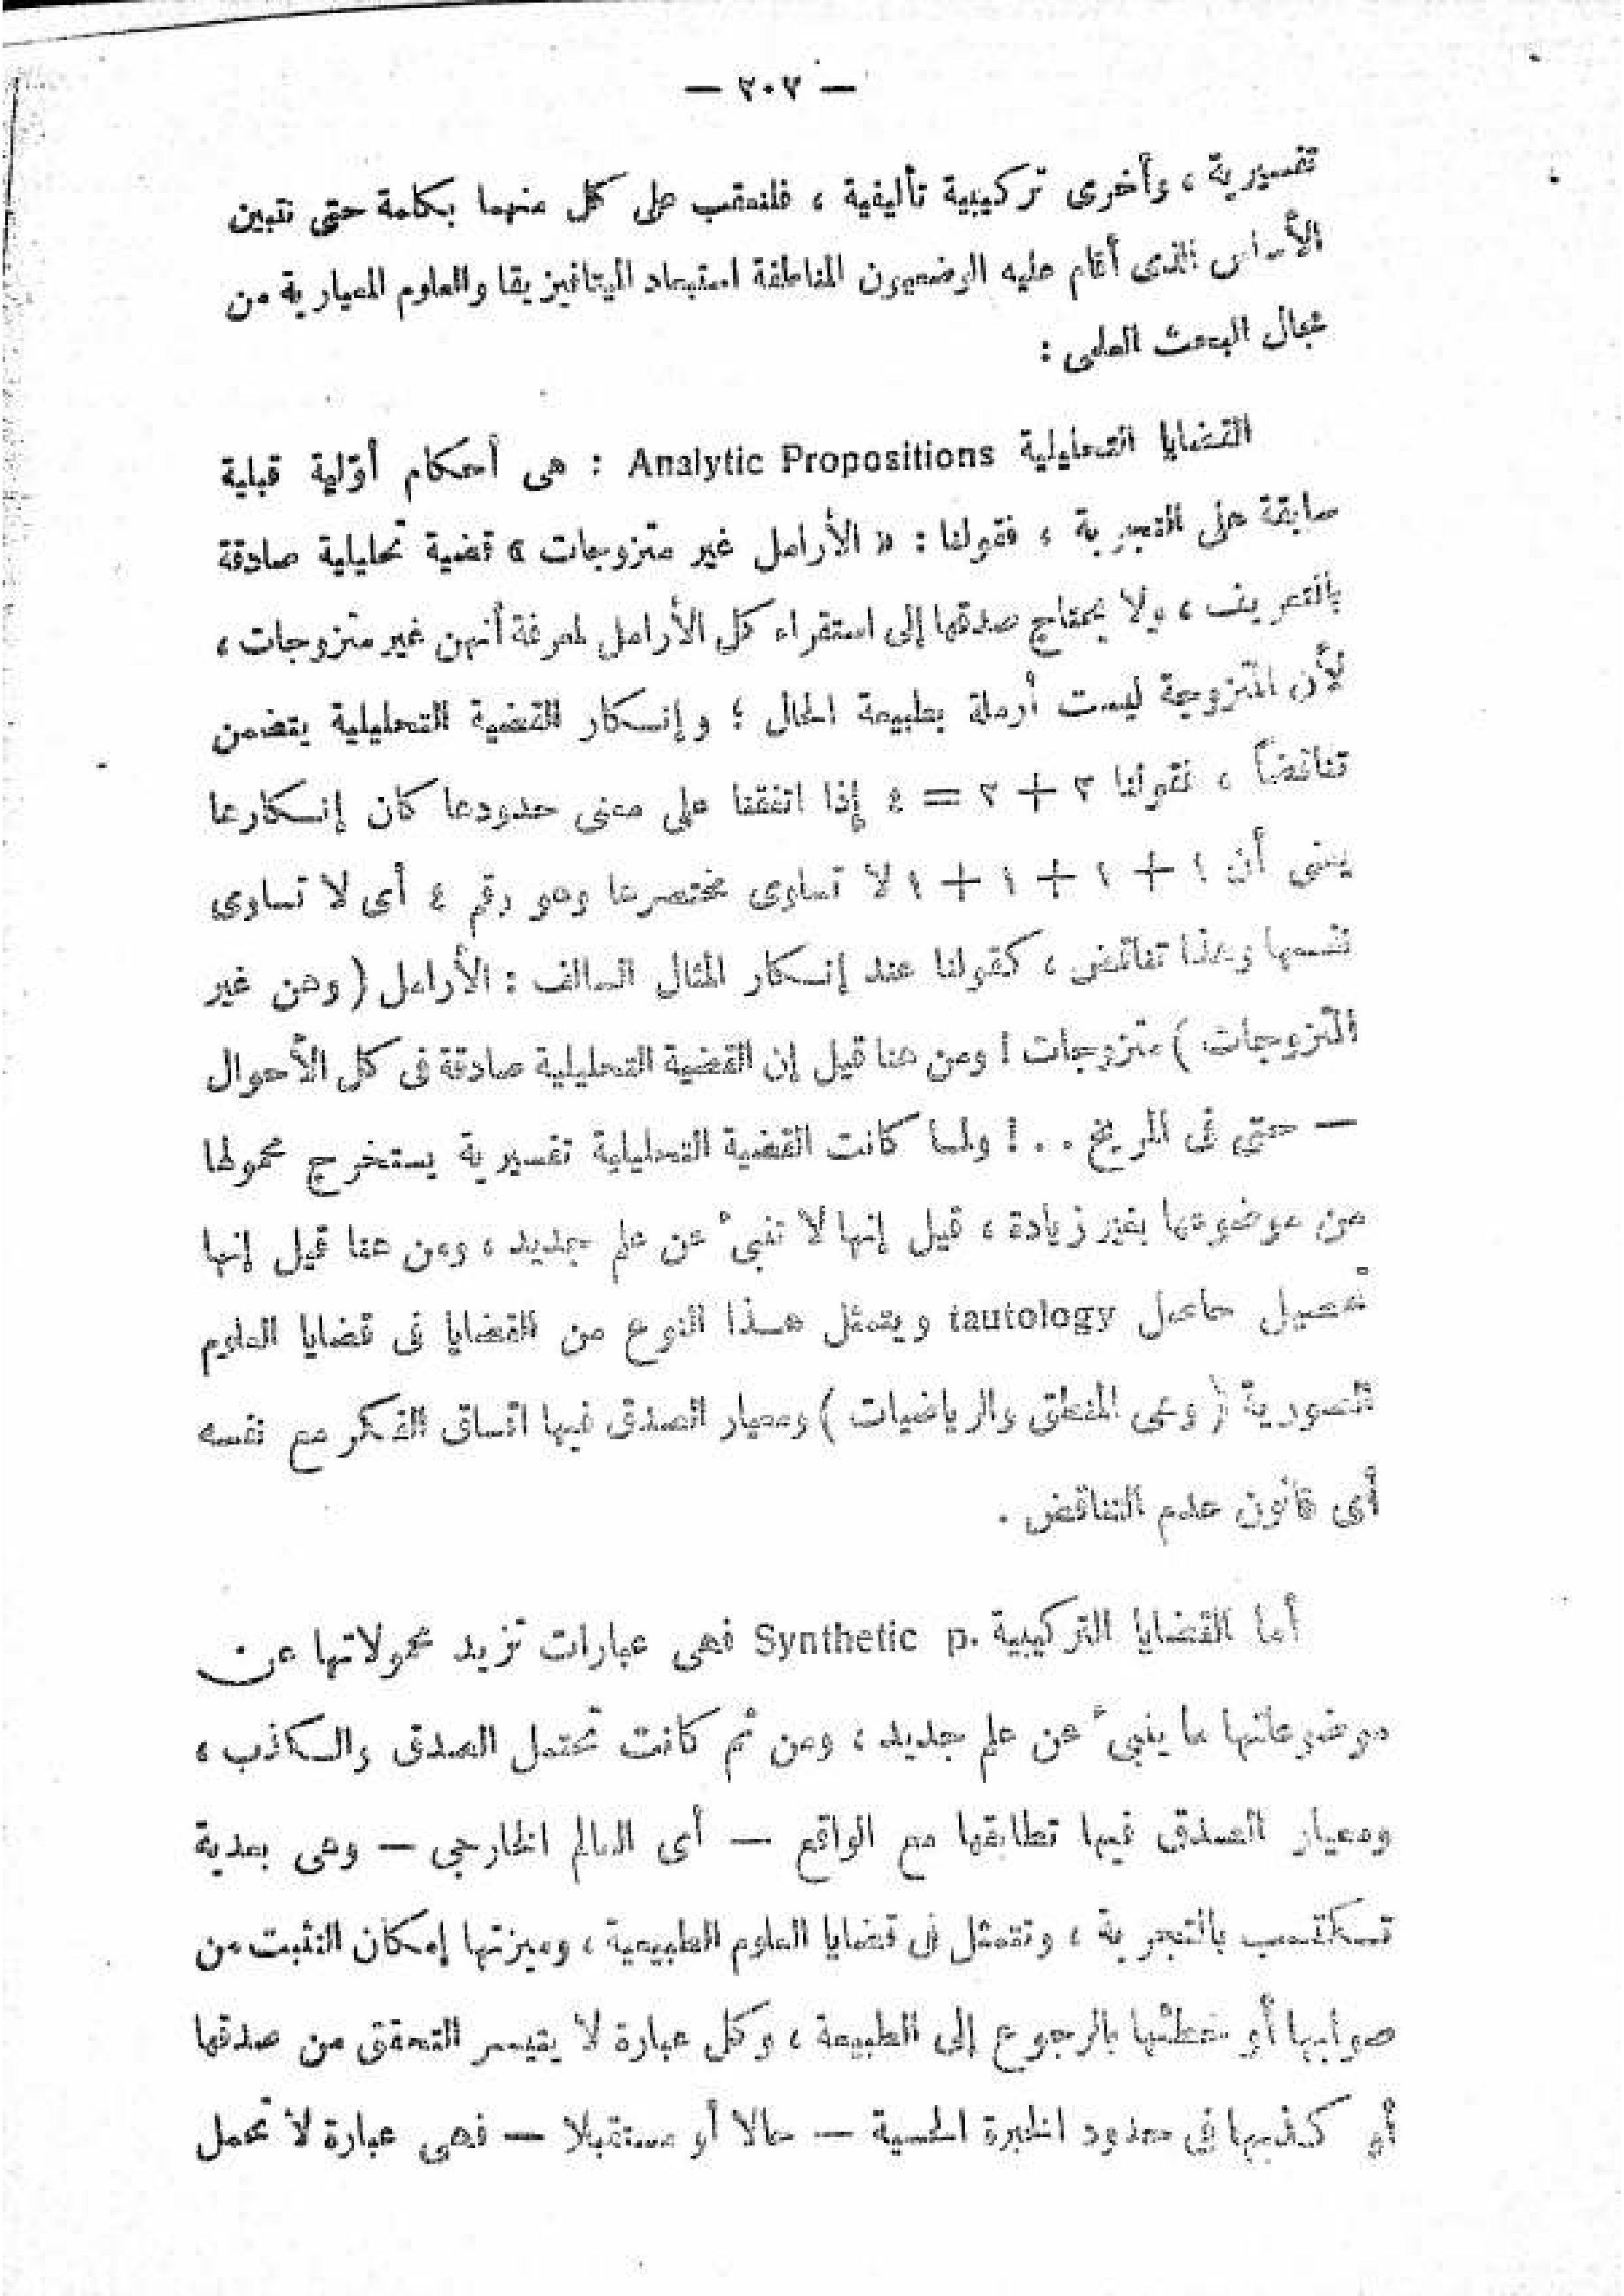 — ٢٠٢ —
تفسيرية ، وأخرى تركيبية تأليفية ، فلنعقب على كل منهما بكلمة حتى نتبين
الأساس الذى أقام عليه الوضعيون المناطقة استبعاد الميتافيزيقا والعلوم المعيارية من
مجال البحث العلمى :
القضايا التحليلية Analytic Propositions : هى أحكام أوّلية قبلية
سابقة على التجربة ، فقولنا : « الأرامل غير متزوجات » قضية تحليلية صادقة
بالتعريف ، ولا يحتاج صدقها إلى استقراء كل الأرامل لمعرفة أنهن غير متزوجات ،
لأن المتزوجة ليست أرملة بطبيعة الحال ؛ وإنكار القضية التحليلية يتضمن
تناقضاً ، فقولنا ٢ + ٢ = ٤ إذا اتفقنا على معنى حدودها كان إنكارها
يعنى أن ١ + ١ + ١ + ١ لا تساوى مختصرها وهو رقم ٤ أى لا تساوى
نفسها وهذا تناقض ، كقولنا عند إنكار المثال السالف : الأرامل ( وهن غير
المتزوجات ) متزوجات ! ومن هنا قيل إن القضية التحليلية صادقة فى كل الأحوال
— حتى فى المريخ . . ! ولما كانت القضية التحليلية تفسيرية يستخرج محمولها
من موضوعها بغير زيادة ، قيل إنها لا تنبىء عن علم جديد ، ومن هنا قيل إنها
تحصيل حاصل tautology ويتمثل هذا النوع من القضايا فى قضايا العلوم
الصورية ( وهى المنطق والرياضيات ) ومعيار الصدق فيها اتساق الفكر مع نفسه
أى قانون عدم التناقض .
أما القضايا التركيبية Synthetic p. فهى عبارات تزيد محمولاتها عن
موضوعاتها ما ينبىء عن علم جديد ، ومن ثم كانت تحتمل الصدق والكذب ،
ومعيار الصدق فيها تطابقها مع الواقع — أى العالم الخارجى — وهى بعدية
تكتسب بالتجربة ، وتتمثل فى قضايا العلوم الطبيعية ، وميزتها إمكان التثبت من
صوابها أو خطئها بالرجوع إلى الطبيعة ، وكل عبارة لا يتيسر التحقق من صدقها
أو كذبها فى حدود الخبرة الحسية — حالا أو مستقبلا — فهى عبارة لا تحمل